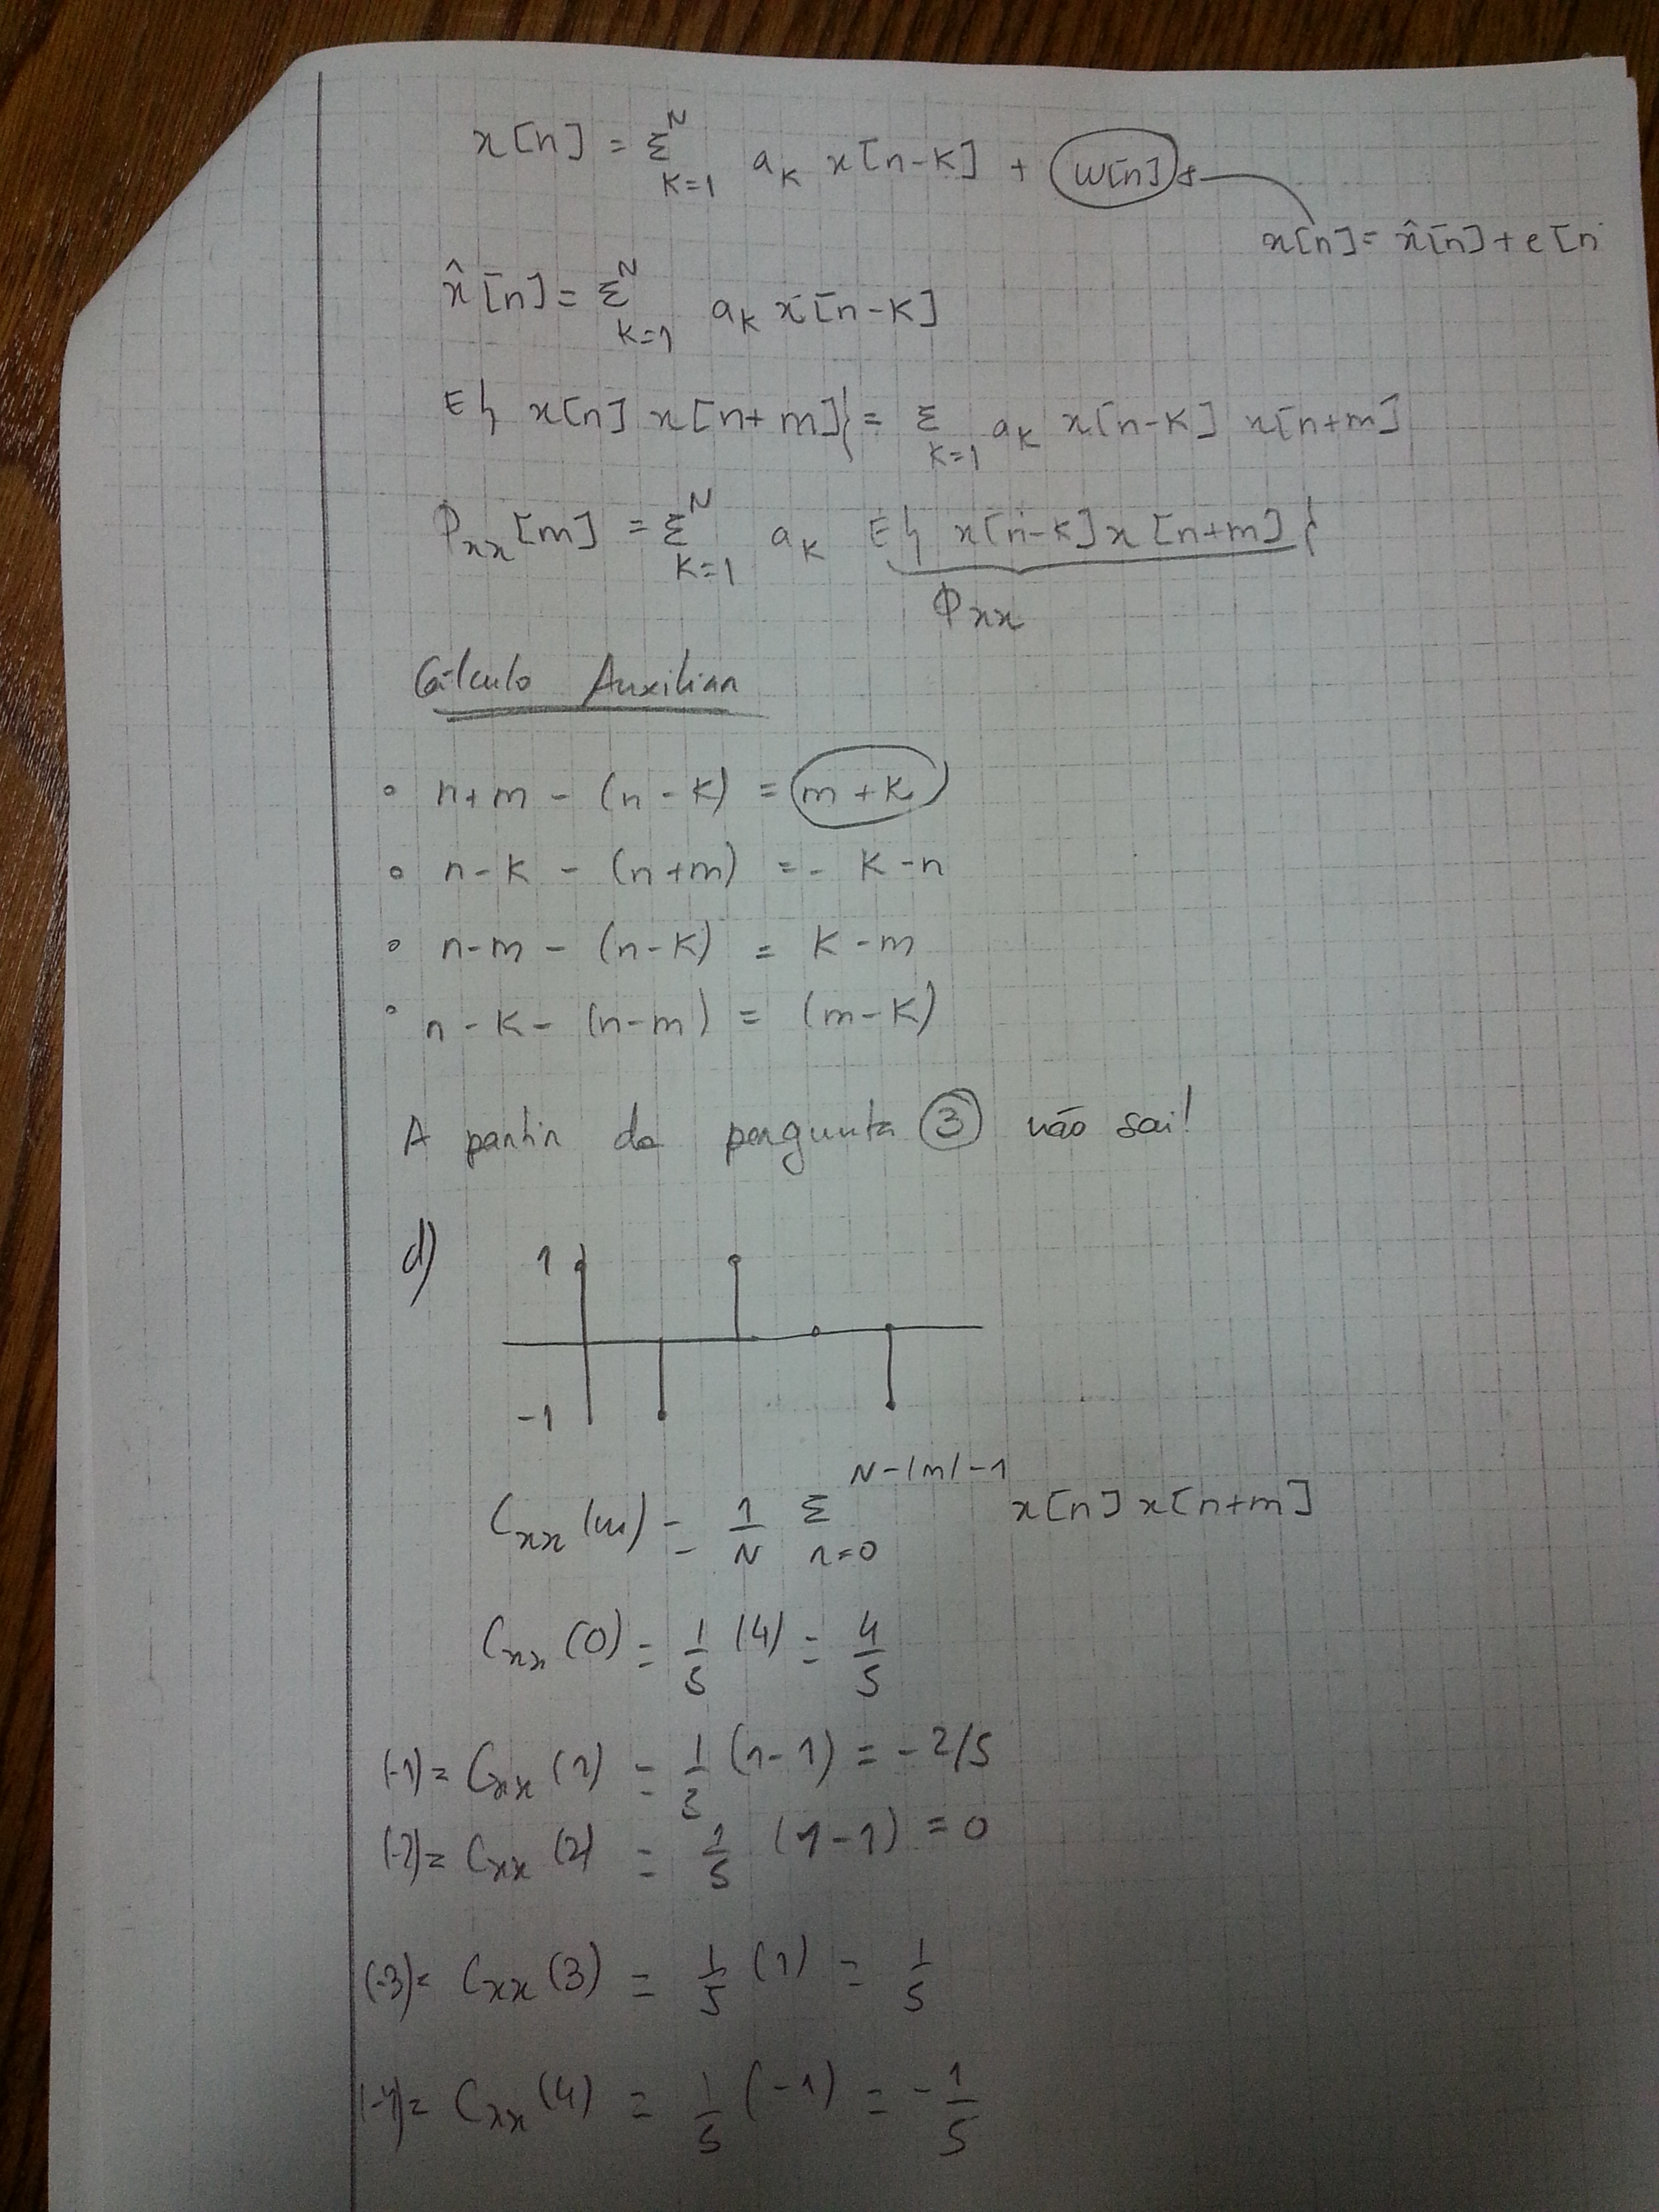 x[n] = Σ^N_{K=1} a_K x[n-K] + w[n]
x[n] = x̂[n] + e[n
x̂[n] = Σ^N_{K=1} a_K x[n-K]
E{ x[n] x[n+m] } = Σ_{K=1} a_K x[n-K] x[n+m]
ϕ_xx[m] = Σ^N_{K=1} a_K E{ x[n-K] x[n+m] }
ϕ_xx
Cálculo Auxiliar
• n+m - (n-K) = m+K
• n-K - (n+m) = - K-n
• n-m - (n-K) = K-m
• n-K - (n-m) = (m-K)
A partir da pergunta 3 não sai!
d)
1
-1
C_xx(m) = 1/N Σ^{N-|m|-1}_{n=0} x[n] x[n+m]
C_xx(0) = 1/5 (4) = 4/5
(-1) = C_xx(1) = 1/5 (-1-1) = -2/5
(-2) = C_xx(2) = 1/5 (1-1) = 0
(-3) = C_xx(3) = 1/5 (1) = 1/5
(-4) = C_xx(4) = 1/5 (-1) = -1/5